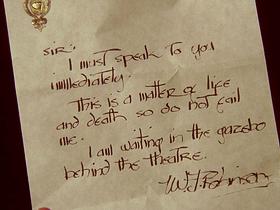 sir:
I must speak to you
immediately.
This is a matter of life
and death so do not fail
me.
I am waiting in the gazebo
behind the theatre.
W.J. Robinson